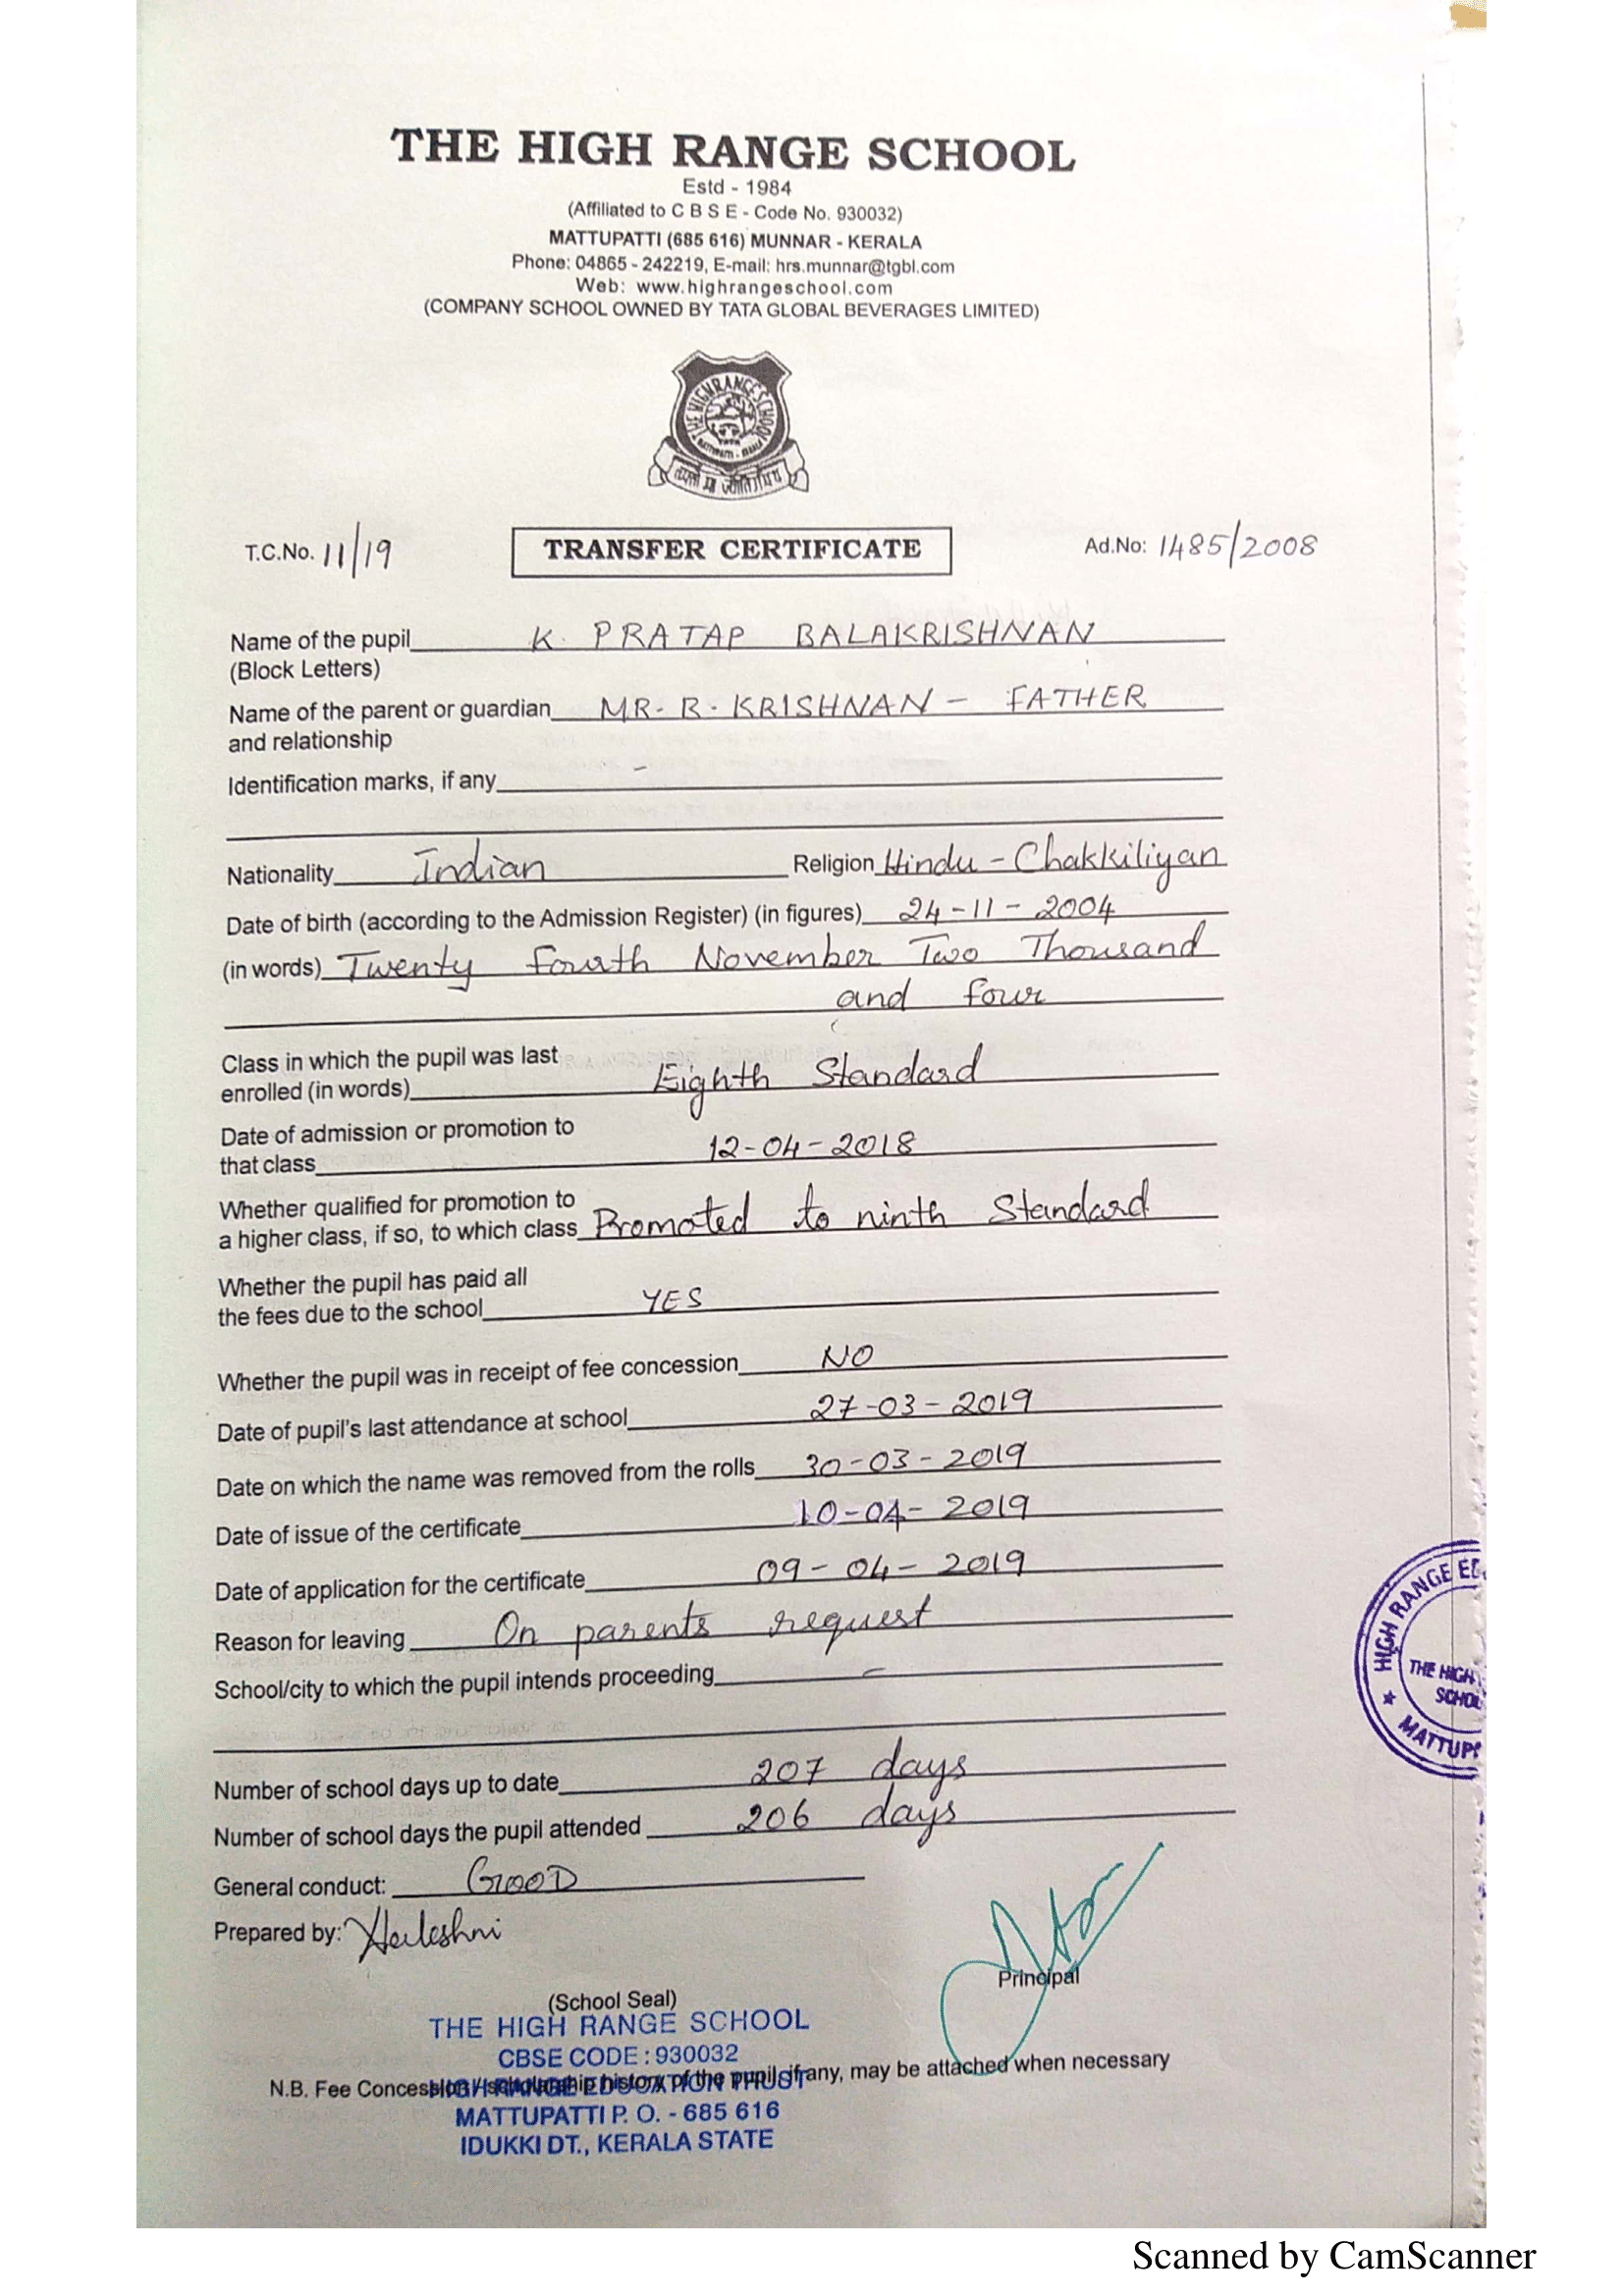 THE HIGH RANGE SCHOOL
Estd - 1984
(Affiliated to C B S E - Code No. 930032)
MATTUPATTI (685 616) MUNNAR - KERALA
Phone: 04865 - 242219, E-mail: hrs.munnar@tgbl.com
Web: www.highrangeschool.com
(COMPANY SCHOOL OWNED BY TATA GLOBAL BEVERAGES LIMITED)
THE HIGH RANGE SCHOOL
तमसो मा ज्योतिर्गमय
T.C.No. 11/19 TRANSFER CERTIFICATE Ad.No: 1485/2008
Name of the pupil K. PRATAP BALAKRISHNAN
(Block Letters)
Name of the parent or guardian MR. R. KRISHNAN - FATHER
and relationship
Identification marks, if any -
Nationality Indian Religion Hindu - Chakkiliyan
Date of birth (according to the Admission Register) (in figures) 24-11-2004
(in words) Twenty fourth November Two Thousand
and four
Class in which the pupil was last
enrolled (in words) Eighth Standard
Date of admission or promotion to
that class 12-04-2018
Whether qualified for promotion to
a higher class, if so, to which class Promoted to ninth Standard
Whether the pupil has paid all
the fees due to the school YES
Whether the pupil was in receipt of fee concession NO
Date of pupil's last attendance at school 27-03-2019
Date on which the name was removed from the rolls 30-03-2019
Date of issue of the certificate 10-04-2019
Date of application for the certificate 09-04-2019
Reason for leaving On parents request
School/city to which the pupil intends proceeding -
HIGH RANGE ED
THE HIGH
SCHOOL
MATTUP
Number of school days up to date 207 days
Number of school days the pupil attended 206 days
General conduct: GOOD
Prepared by:
Principal
(School Seal)
THE HIGH RANGE SCHOOL
CBSE CODE : 930032
N.B. Fee Concession / scholarship history of the pupil, if any, may be attached when necessary
HIGH RANGE EDUCATION TRUST
MATTUPATTI P. O. - 685 616
IDUKKI DT., KERALA STATE
Scanned by CamScanner